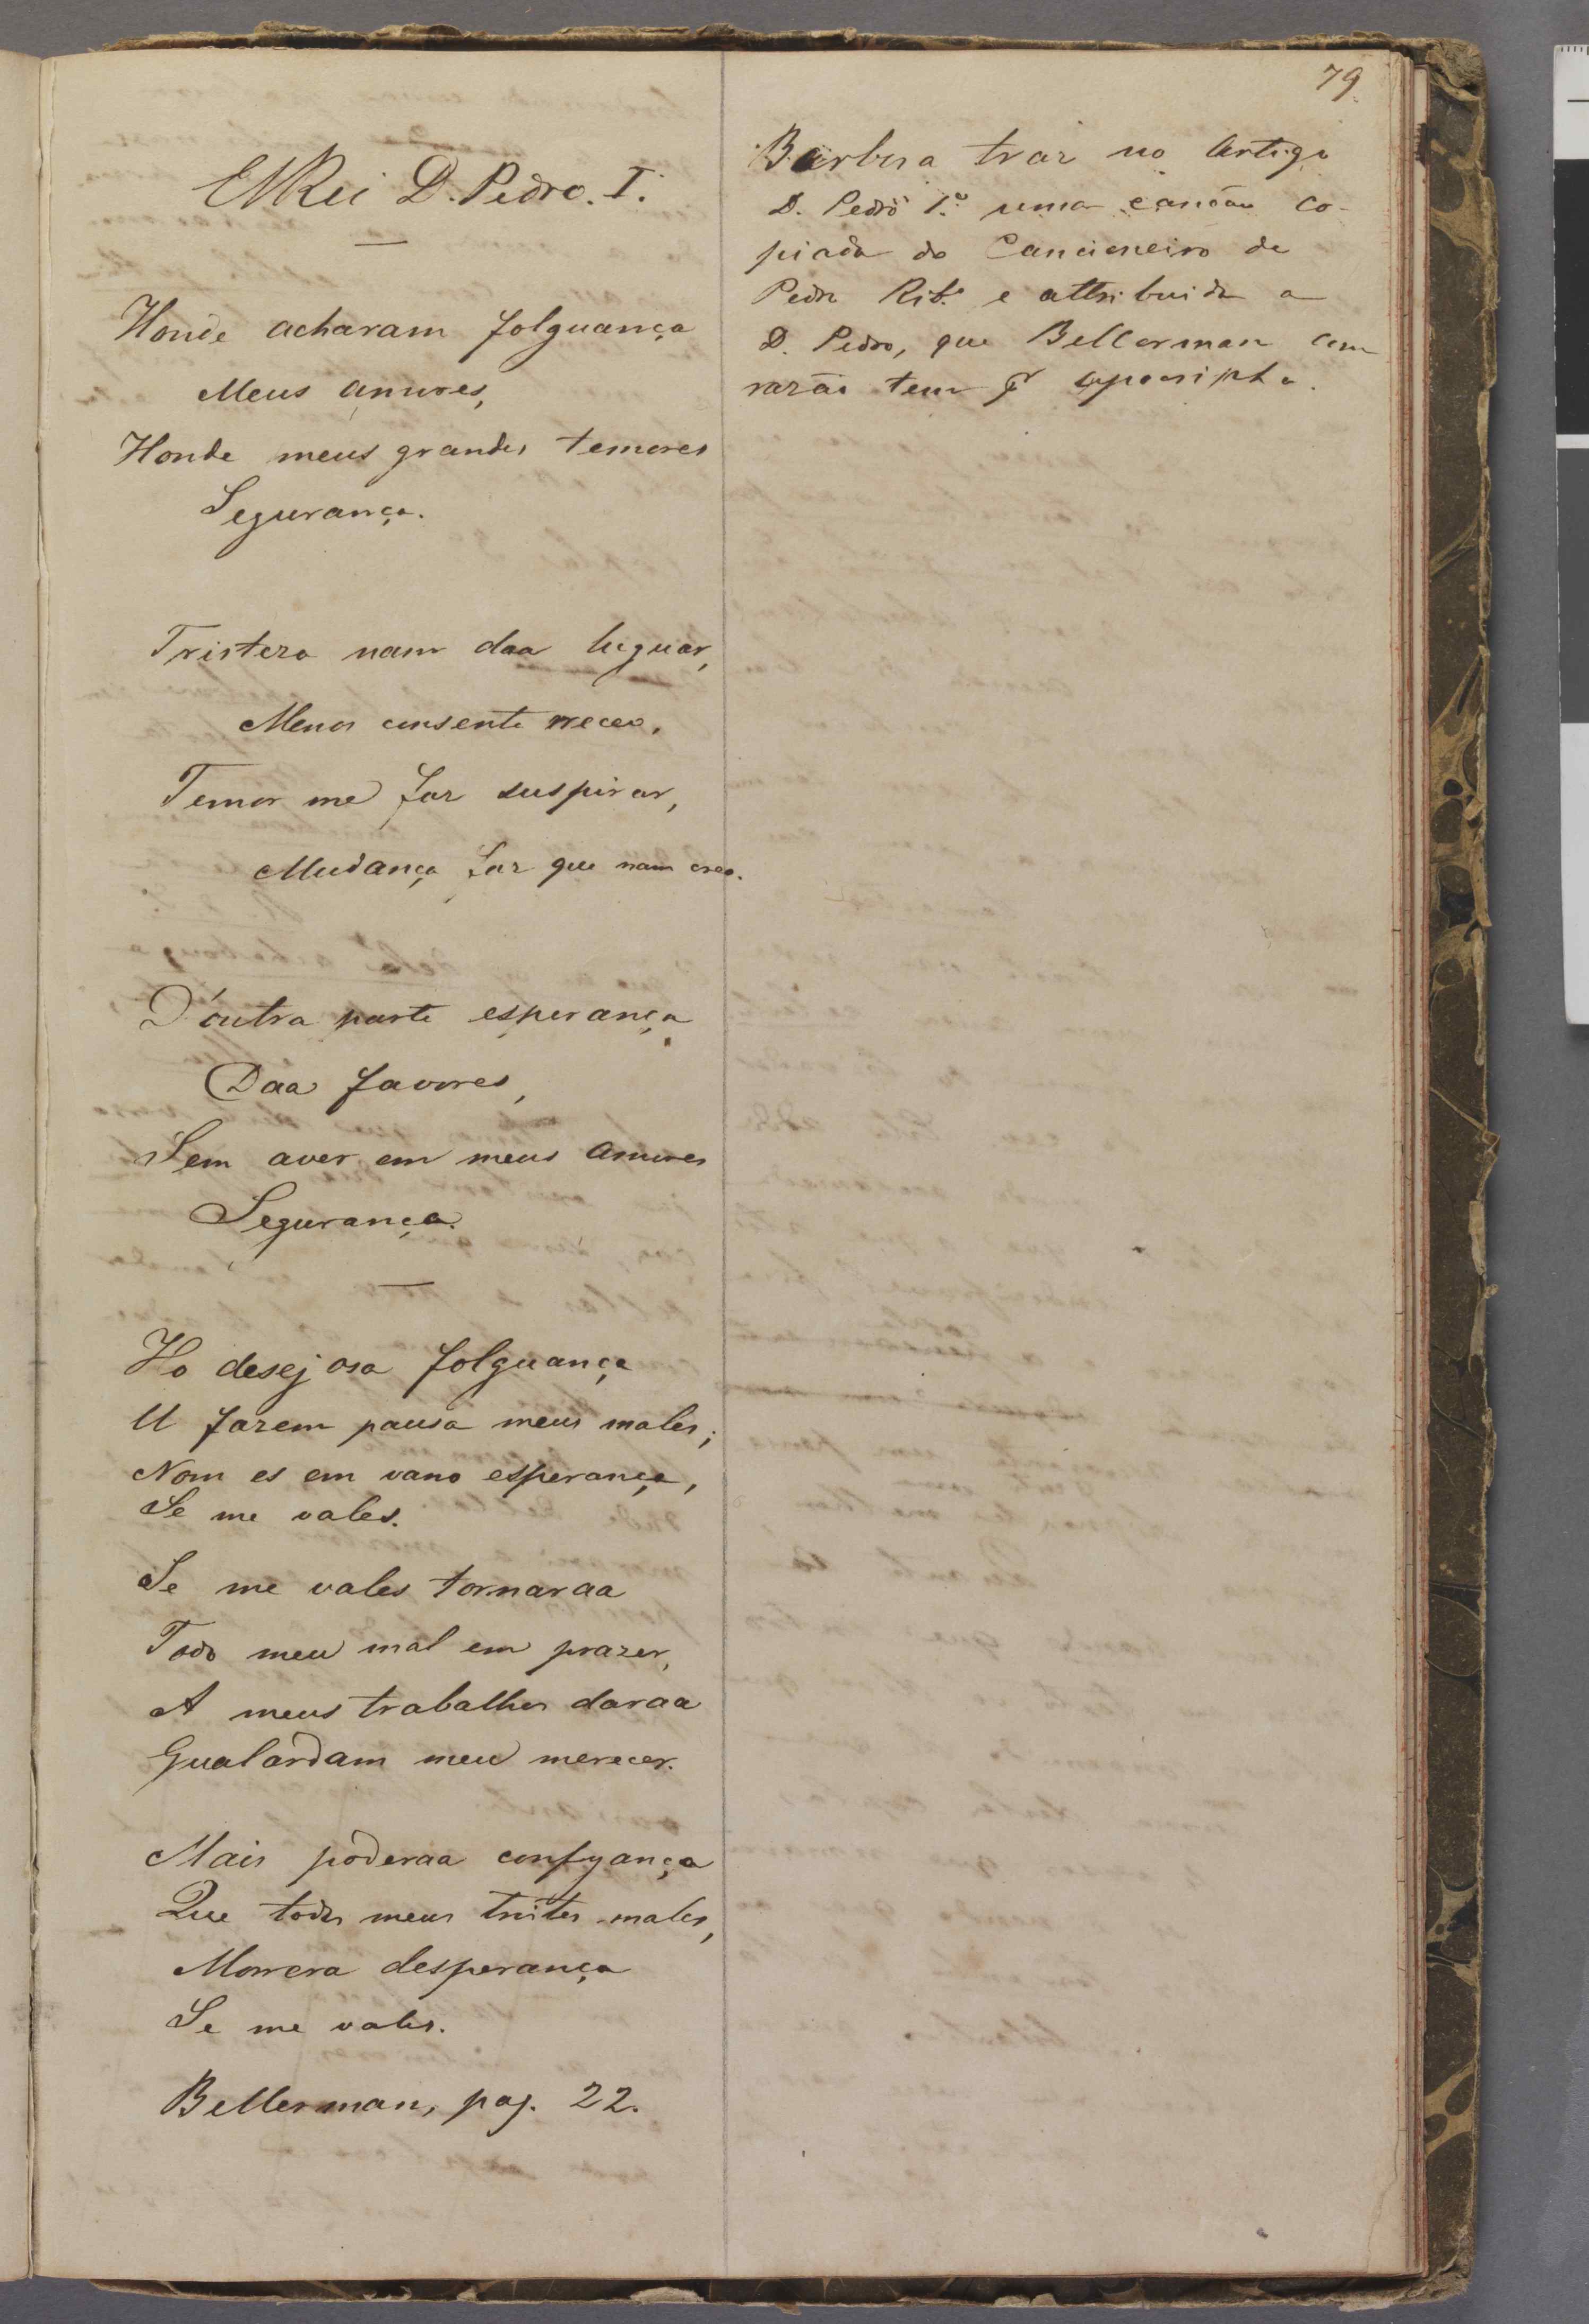 79
ElRei D. Pedro. I.
Honde acharam folguança
Meus amores,
Honde meus grandes temores
Segurança.
Tristeza nam daa luguar,
Menos consente rreceo,
Temor me faz suspirar,
Mudança faz que nam creo.
D'outra parte esperança
Daa favores,
Sem aver em meus amores
Segurança.
Ho desejosa folguança
U fazem pausa meus males;
Nom es em vano esperança,
Se me vales.
Se me vales tornaraa
Todo meu mal em prazer,
A meus trabalhos daraa
Gualardam meu merecer.
Mais poderaa confyança
Que todos meus tristes males,
Morrera desperança
Se me vales.
Bellerman, pag. 22.
Barbosa traz no Artigo
D. Pedro 1.º uma canção co-
piada do Cancioneiro de
Pedro Rib.º e attribuida a
D. Pedro, que Bellerman com
razão tem pr apocripha.